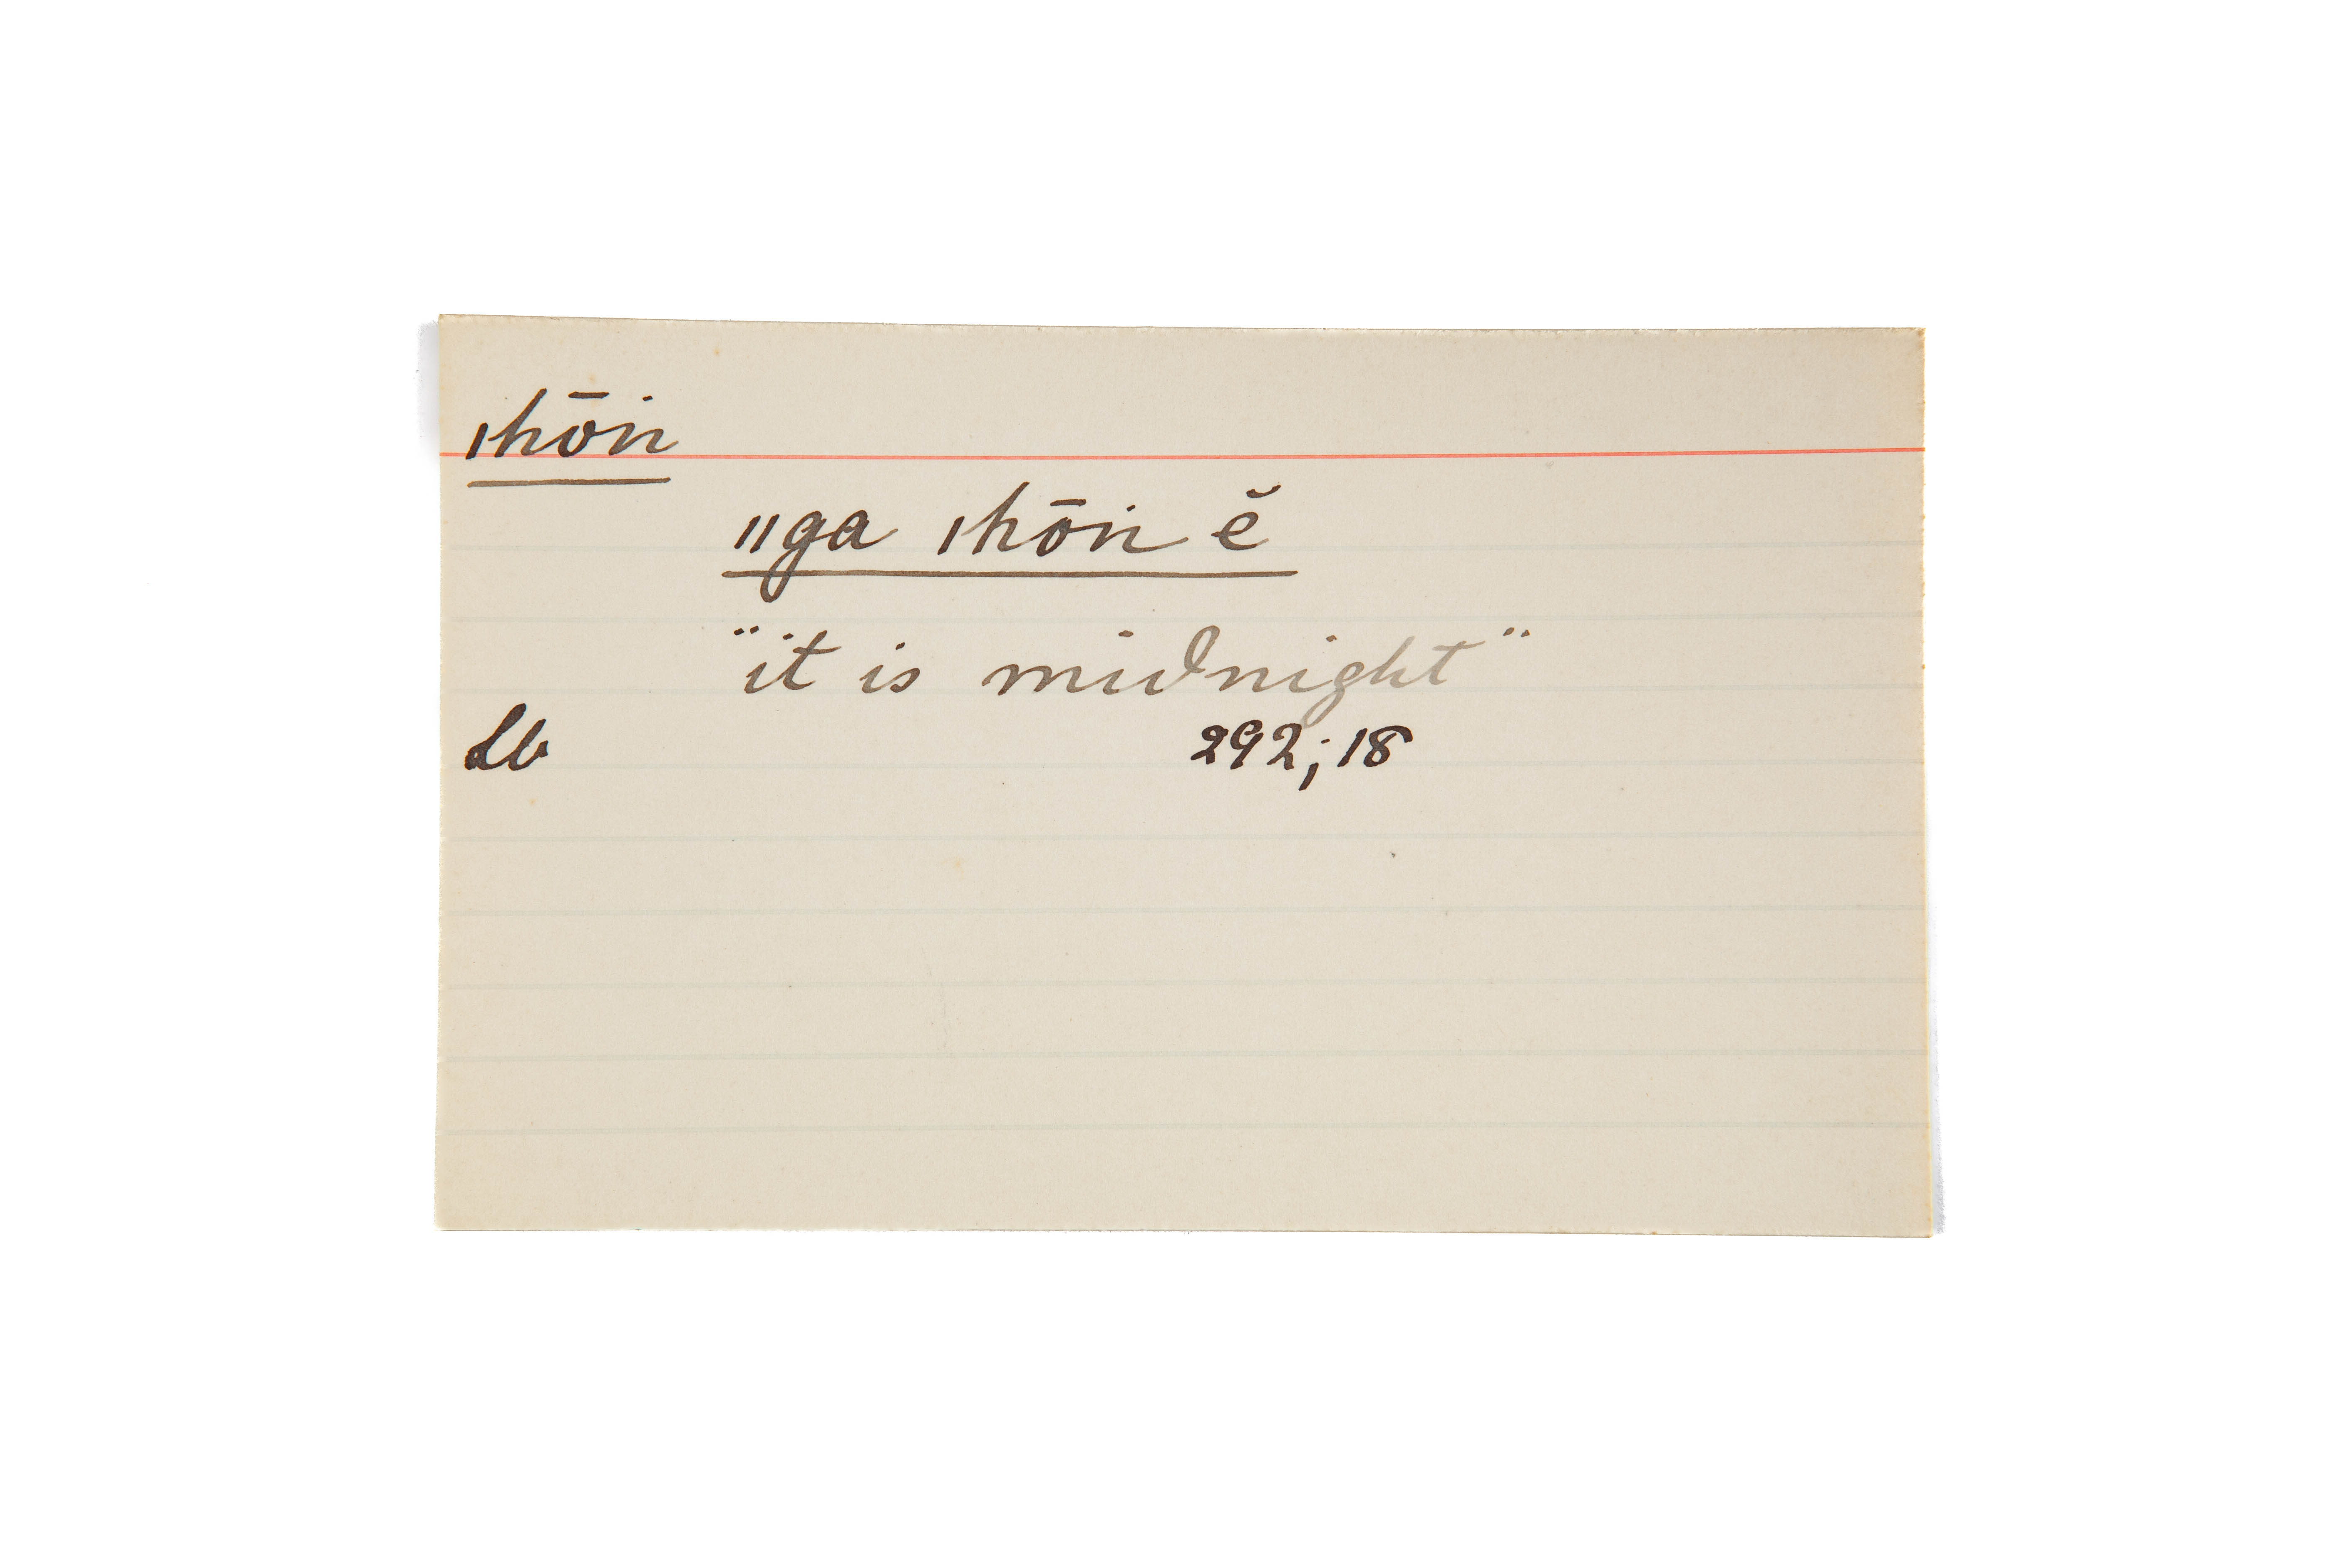 ǀhōin
ǁga ǀhōin ĕ
"it is midnight"
Lb 292; 18